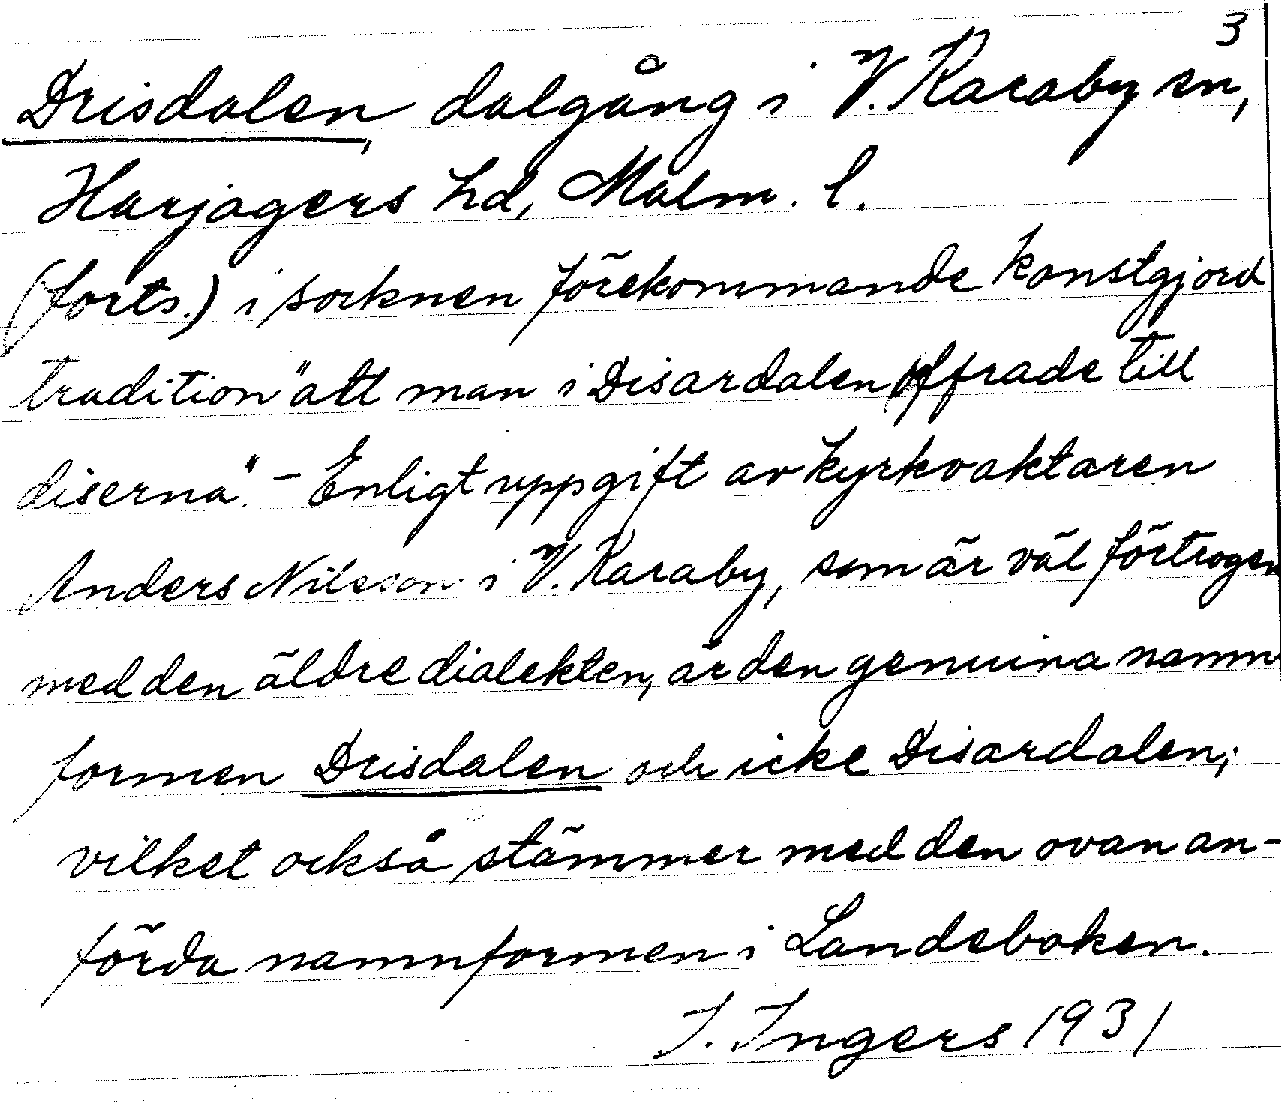 3
Drisdalen, dalgång i V. Karaby sn,
Harjagers hd, Malm. l.
(forts.) i socknen förekommande konstgjord
tradition "att man i Disardalen offrade till
diserna". - Enligt uppgift av kyrkvaktaren
Anders Nilsson i V. Karaby, som är väl förtrogen
med den äldre dialekten, är den genuina namn
formen Drisdalen och icke Disardalen,
vilket också stämmer med den ovan an-
förda namnformen i Landeboken.
I. Ingers 1931